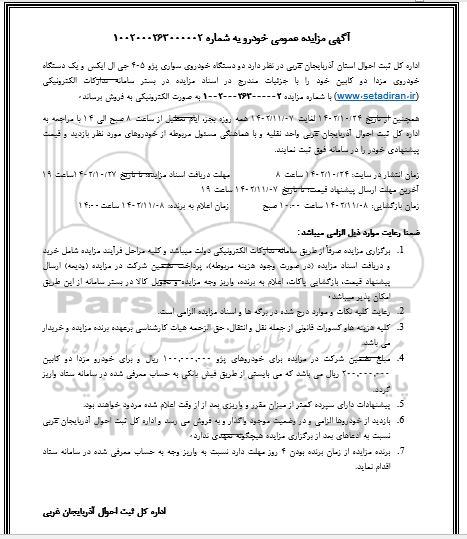 آگهی مزایده عمومی خودرو به شماره ۱۰۰۲۰۰۰۲۶۳۰۰۰۰۰۲
اداره کل ثبت احوال استان آذربایجان غربی در نظر دارد دو دستگاه خودروی سواری پژو ۴۰۵ جی ال ایکس و یک دستگاه
خودروی مزدا دو کابین خود را با جزئیات مندرج در اسناد مزایده در بستر سامانه تدارکات الکترونیکی
(www.setadiran.ir) با شماره مزایده ۱۰۰۲۰۰۰۲۶۳۰۰۰۰۰۲ به صورت الکترونیکی به فروش برساند.
همچنین از تاریخ ۱۴۰۲/۱۰/۲۴ لغایت ۱۴۰۲/۱۱/۰۷ همه روزه بجز، ایام تعطیل از ساعت ۸ صبح الی ۱۴ با مراجعه به
اداره کل ثبت احوال آذربایجان غربی واحد نقلیه و با هماهنگی مسئول مربوطه از خودروهای مورد نظر بازدید و قیمت
پیشنهادی خودر را در سامانه فوق ثبت نمایند.
زمان انتشار در سایت: ۱۴۰۲/۱۰/۲۴ ساعت ۸ مهلت دریافت اسناد مزایده: تا تاریخ ۱۴۰۲/۱۰/۲۷ ساعت ۱۹
آخرین مهلت ارسال پیشنهاد قیمت: تا تاریخ ۱۴۰۲/۱۱/۰۷ ساعت ۱۹
زمان بازگشایی: ۱۴۰۲/۱۱/۰۸ ساعت ۱۰:۰۰ صبح زمان اعلام به برنده: ۱۴۰۲/۱۱/۰۸ ساعت ۱۴:۰۰
ضمنا رعایت موارد ذیل الزامی میباشد:
1. برگزاری مزایده صرفاً از طریق سامانه تدارکات الکترونیکی دولت میباشد و کلیه مراحل فرآیند مزایده شامل خرید
و دریافت اسناد مزایده (در صورت وجود هزینه مربوطه)، پرداخت تضمین شرکت در مزایده (ودیعه) ارسال
پیشنهاد قیمت، بازگشایی پاکات، اعلام به برنده، واریز وجه مزایده و تحویل کالا در بستر سامانه از این طریق
امکان پذیر میباشد.
2. رعایت کلیه نکات و موارد درج شده در برگه ها و اسناد مزایده الزامی است.
3. کلیه هزینه هاو کسورات قانونی از جمله نقل و انتقال، حق الزحمه هیات کارشناسی برعهده برنده مزایده و خریدار
می باشد.
4. مبلغ تضمین شرکت در مزایده برای خودروهای پژو ۱۰۰،۰۰۰،۰۰۰ ریال و برای خودرو مزدا دو کابین
۲۰۰،۰۰۰،۰۰۰ ریال می باشد که می بایستی از طریق فیش بانکی به حساب معرفی شده در سامانه ستاد واریز
گردد.
5. پیشنهادات دارای سپرده کمتر از میزان مقرر و واریزی بعد از از وقت اعلام شده مردود خواهند بود.
6. بازدید از خودروها الزامی و در وضعیت موجود واگذار و به فروش می رسد و اداره کل ثبت احوال آذربایجان غربی
نسبت به ادعاهای بعد از برگزاری مزایده هیچگونه تعهدی ندارد.
7. برنده مزایده از زمان برنده بودن ۴ روز مهلت دارد نسبت به واریز وجه به حساب معرفی شده در سامانه ستاد
اقدام نماید.
اداره کل ثبت احوال آذربایجان غربی